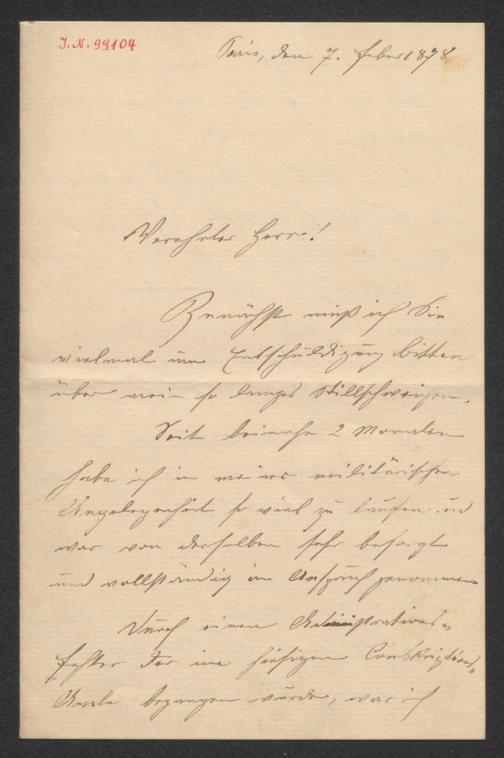 J.N. 99104
Paris, den 7. Feber 1878
Verehrter Herr!
Zunächst muß ich Sie
vielmal um Entschuldigung bitten
über mein so langes Stillschweigen.
Seit beinahe 2 Monaten
habe ich in meiner militärischen
Angelegenheit so viel zu laufen und
war von derselben sehr besorgt
und vollständig in Anspruch genommen
Durch einen Administrations-
fehler der im hiesigen Conskriptions-
Amte begangen wurde, war ich